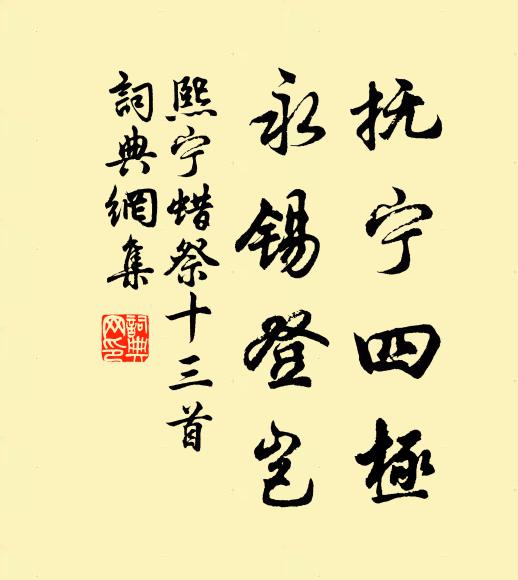 抚宁四極
永锡登岂
熙宁蜡祭十三首
詞典網集
詞典
网印